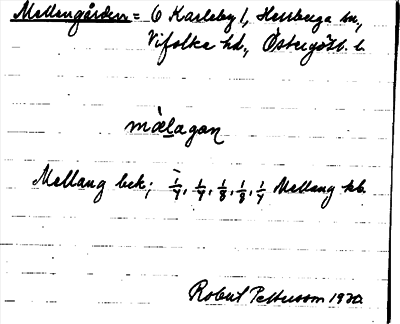 Mellangården = 6 Karleby l, Herrberga sn,
Vifolka hd, Östergötl. l.
mælagan
Mellang bek; 1/4, 1/4, 1/8, 1/8, 1/4 Mellang kb.
Robert Pettersson 1920